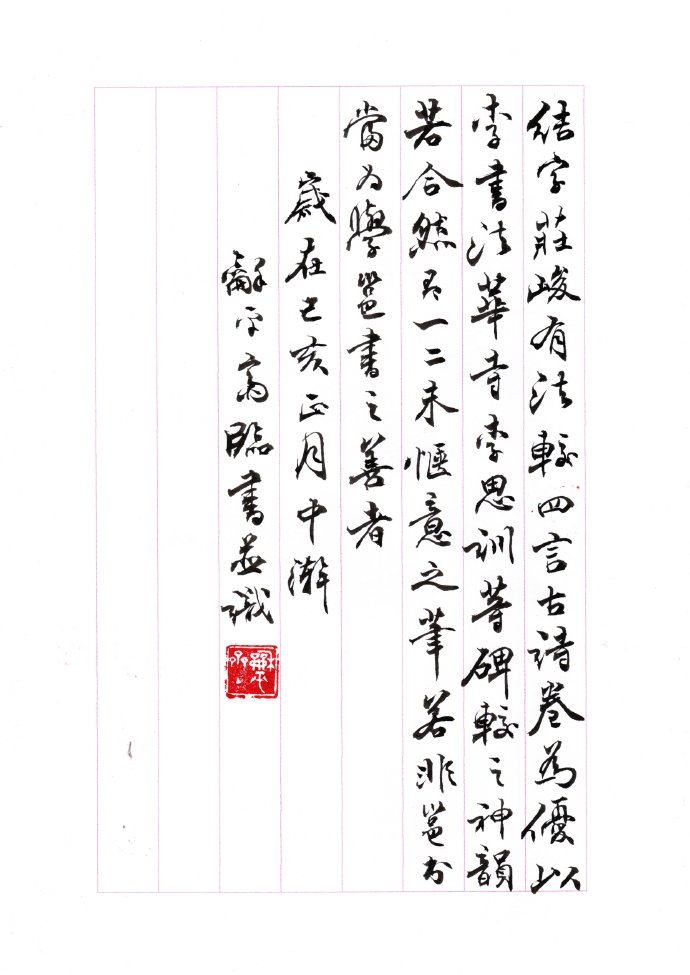 結字莊峻有法較四言古詩卷爲優以
李書法華寺李思訓等碑較之神韻
若合然不一二未愜意之筆若非邕書
當為學邕書之善者
歲在己亥正月中澣
龢平齋臨書並識